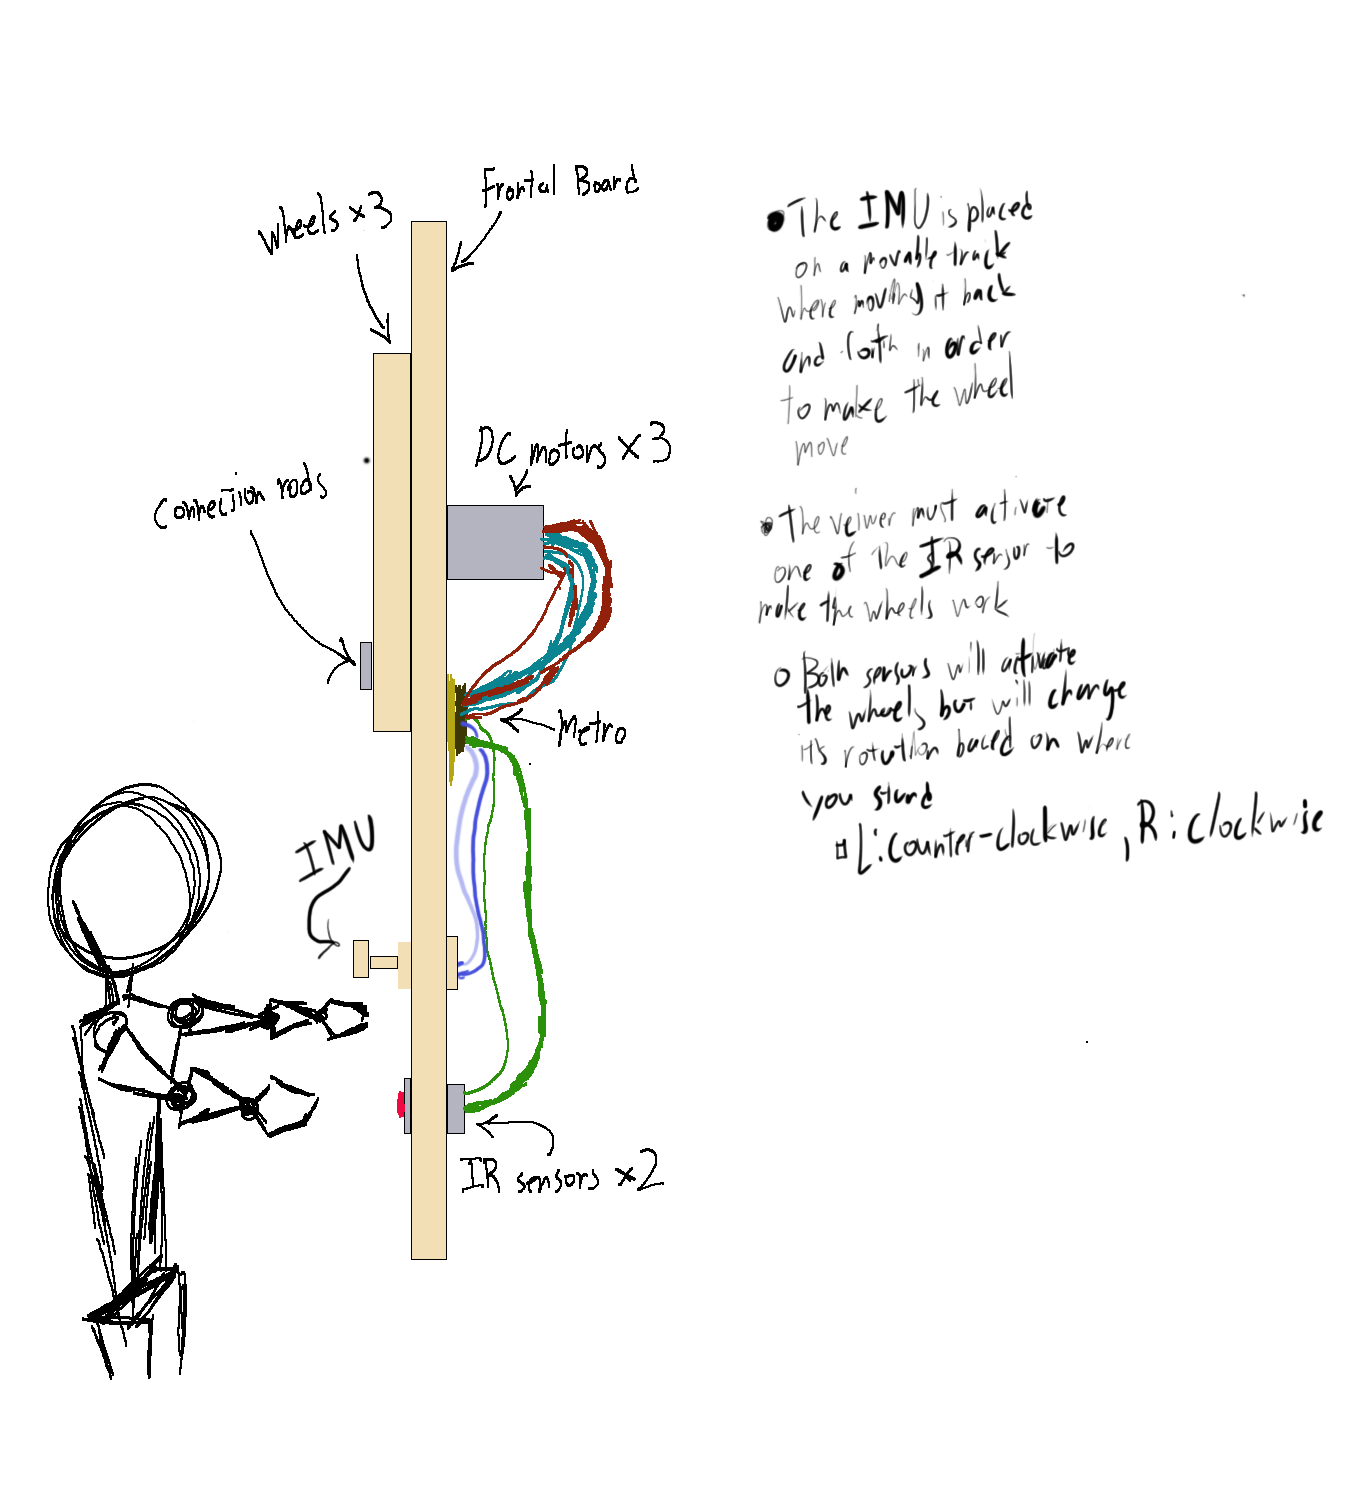 Frontal Board
wheels x3
DC motors x3
Connection rods
Metro
IMU
IR sensors x2
• The IMU is placed
on a movable track
where moving it back
and forth in order
to make the wheel
move
• The veiwer must activate
one of the IR sensor to
make the wheels work
○ Both sensors will activate
the wheels, but will change
it's rotation baced on where
you stand
□ L: Counter-clockwise, R: clockwise